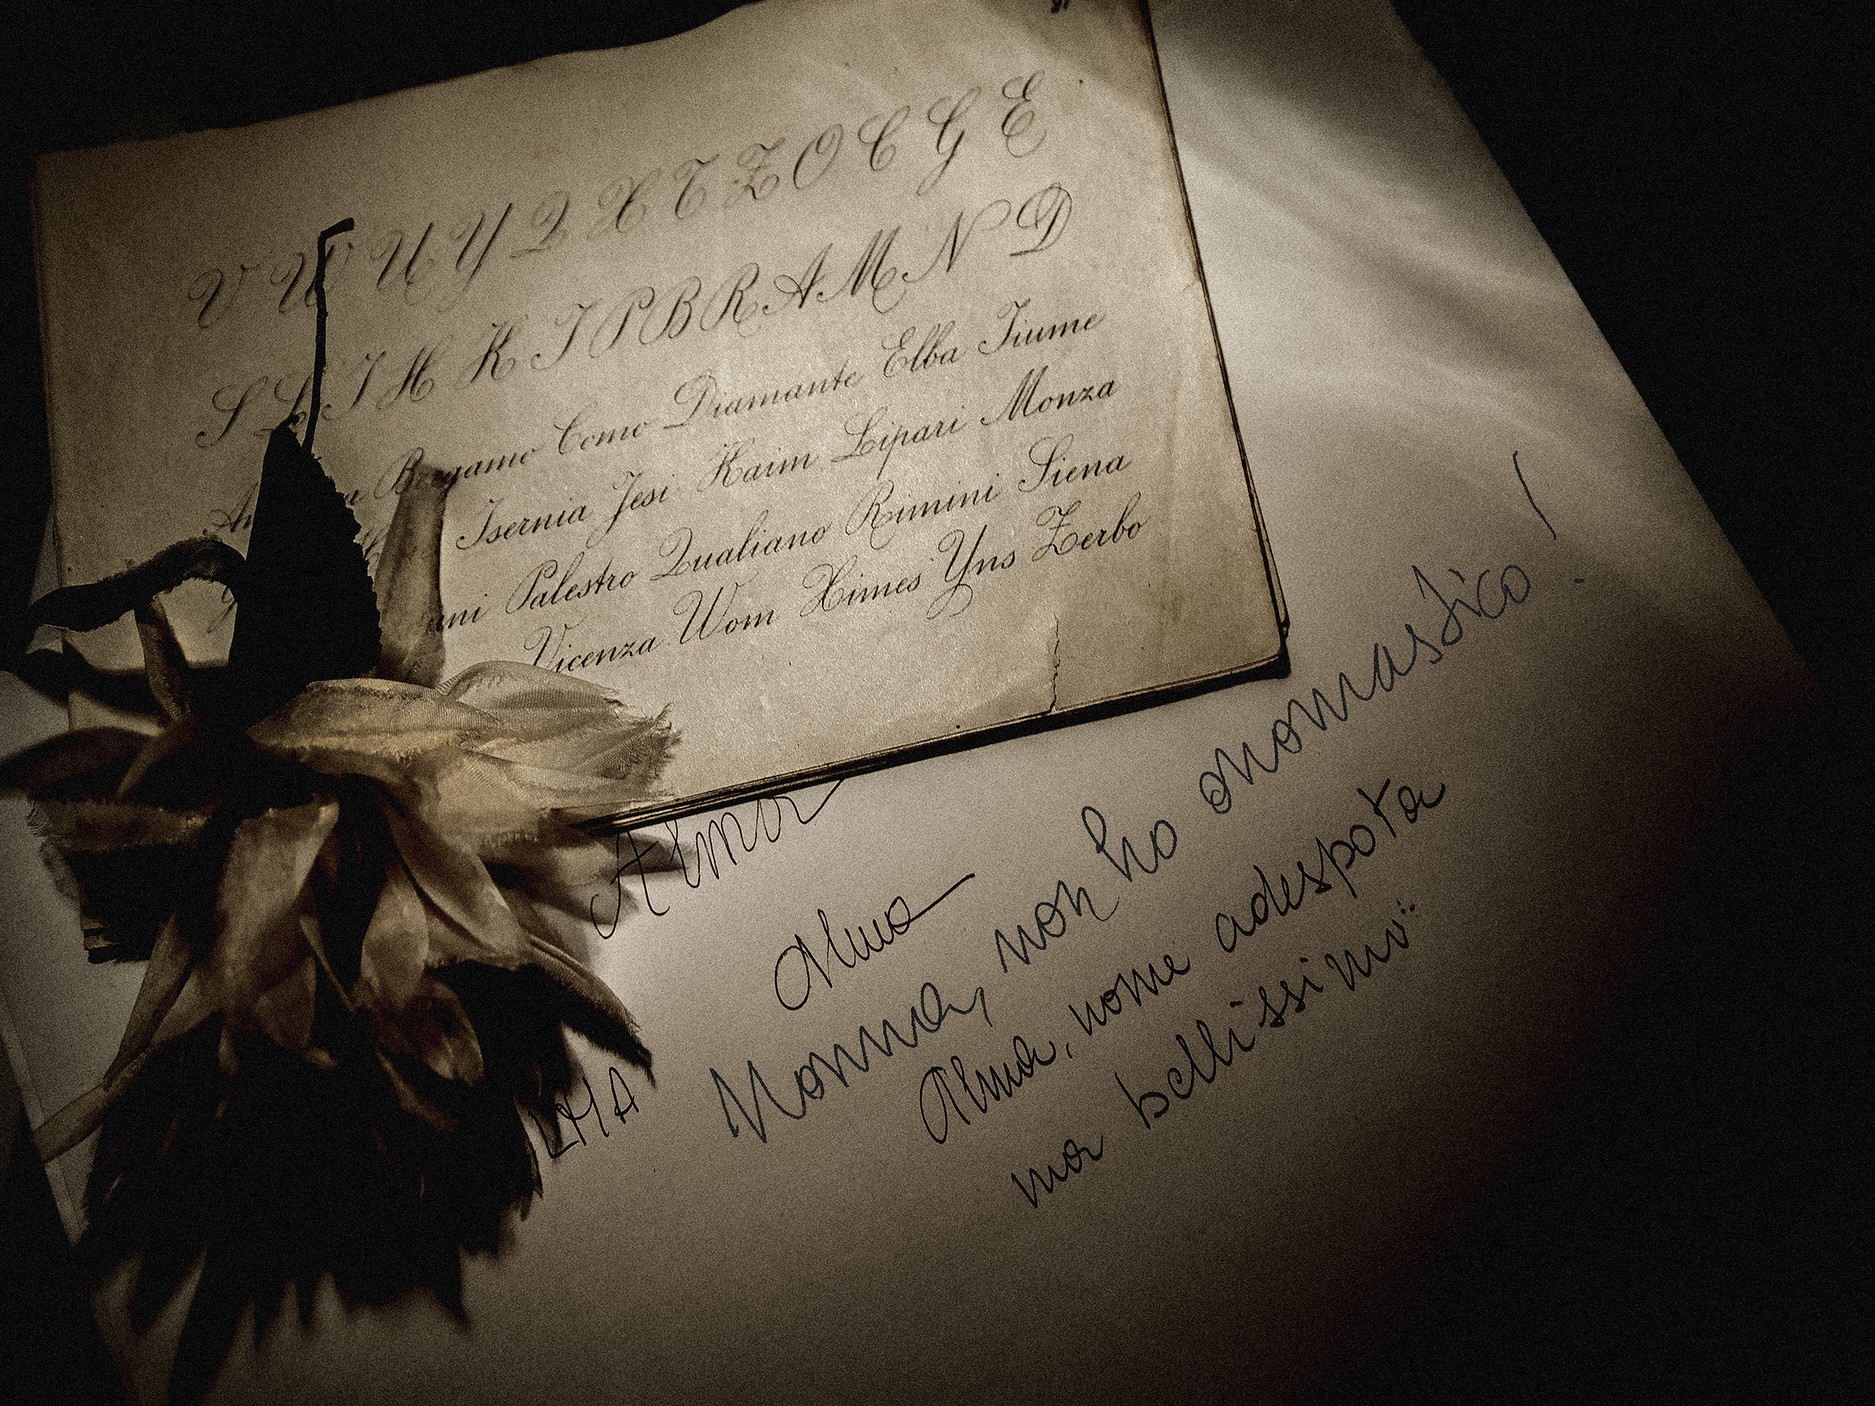 V W U Y Q X T Z O C G E
S L J H K I P B R A M N D
Bergamo Como Diamante Elba Fiume
Isernia Jesi Kaim Lipari Monza
Palestro Qualiano Rimini Siena
Vicenza Wom Ximes Yns Zerbo
Alma
Alma
Nonna, non ho onomastico!
Alma, nome adespota
ma bellissimo